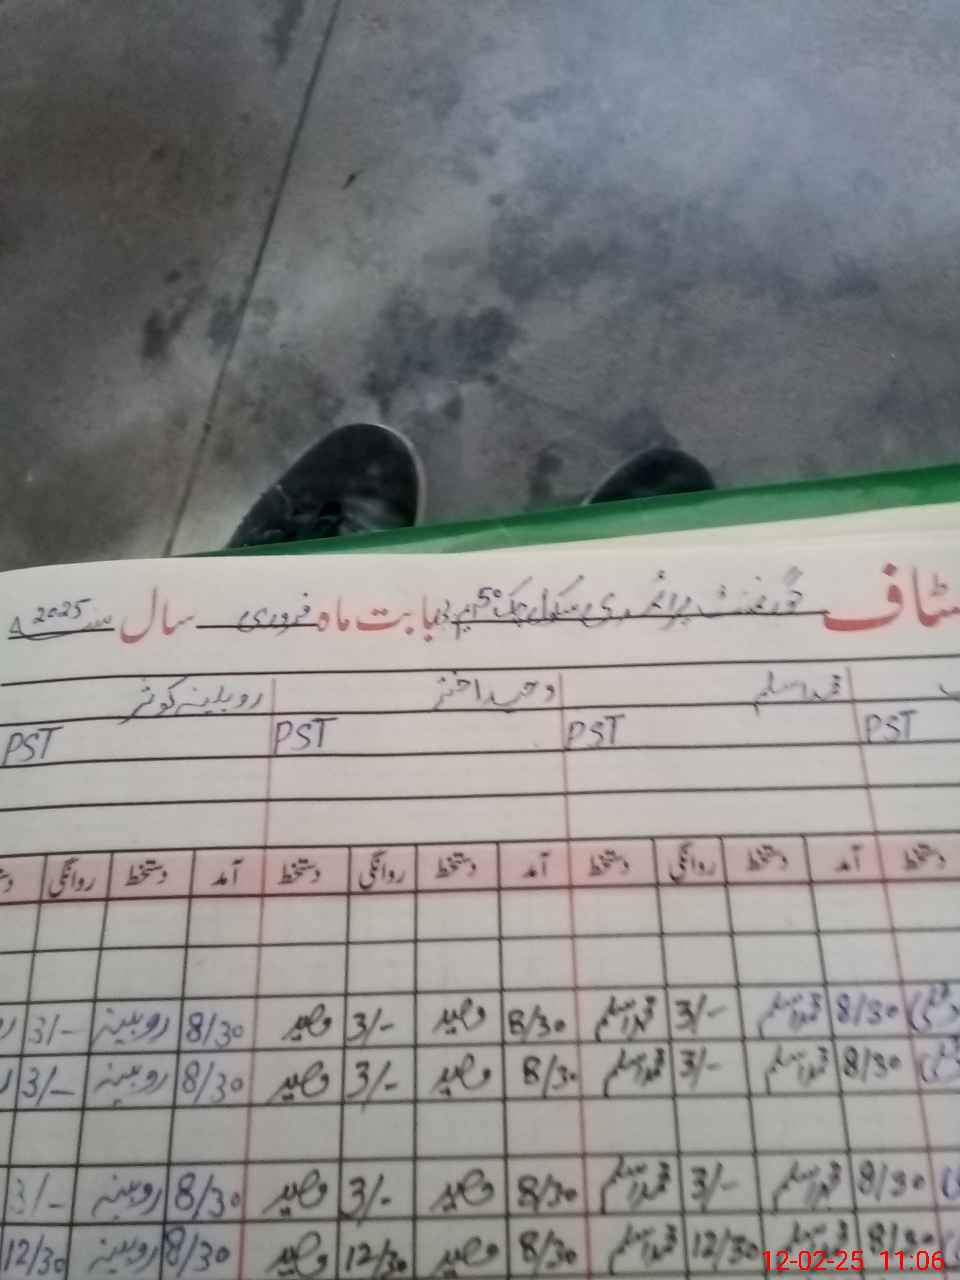 سٹاف گورنمنٹ پرائمری سکول چک 50 ایم بی بابت ماہ فروری سال 2025
محمد اسلم وحید اختر روبینہ کوثر
PST PST PST PST
دستخط آمد دستخط روانگی دستخط آمد دستخط روانگی دستخط آمد دستخط روانگی
8/30 محمد اسلم 3/- محمد اسلم 8/30 وحید 3/- وحید 8/30 روبینہ 3/-
8/30 محمد اسلم 3/- محمد اسلم 8/30 وحید 3/- وحید 8/30 روبینہ 3/-
8/30 محمد اسلم 3/- محمد اسلم 8/30 وحید 3/- وحید 8/30 روبینہ 3/-
8/30 محمد اسلم 12/30 محمد اسلم 8/30 وحید 12/30 وحید 8/30 روبینہ 12/30
12-02-25 11:06